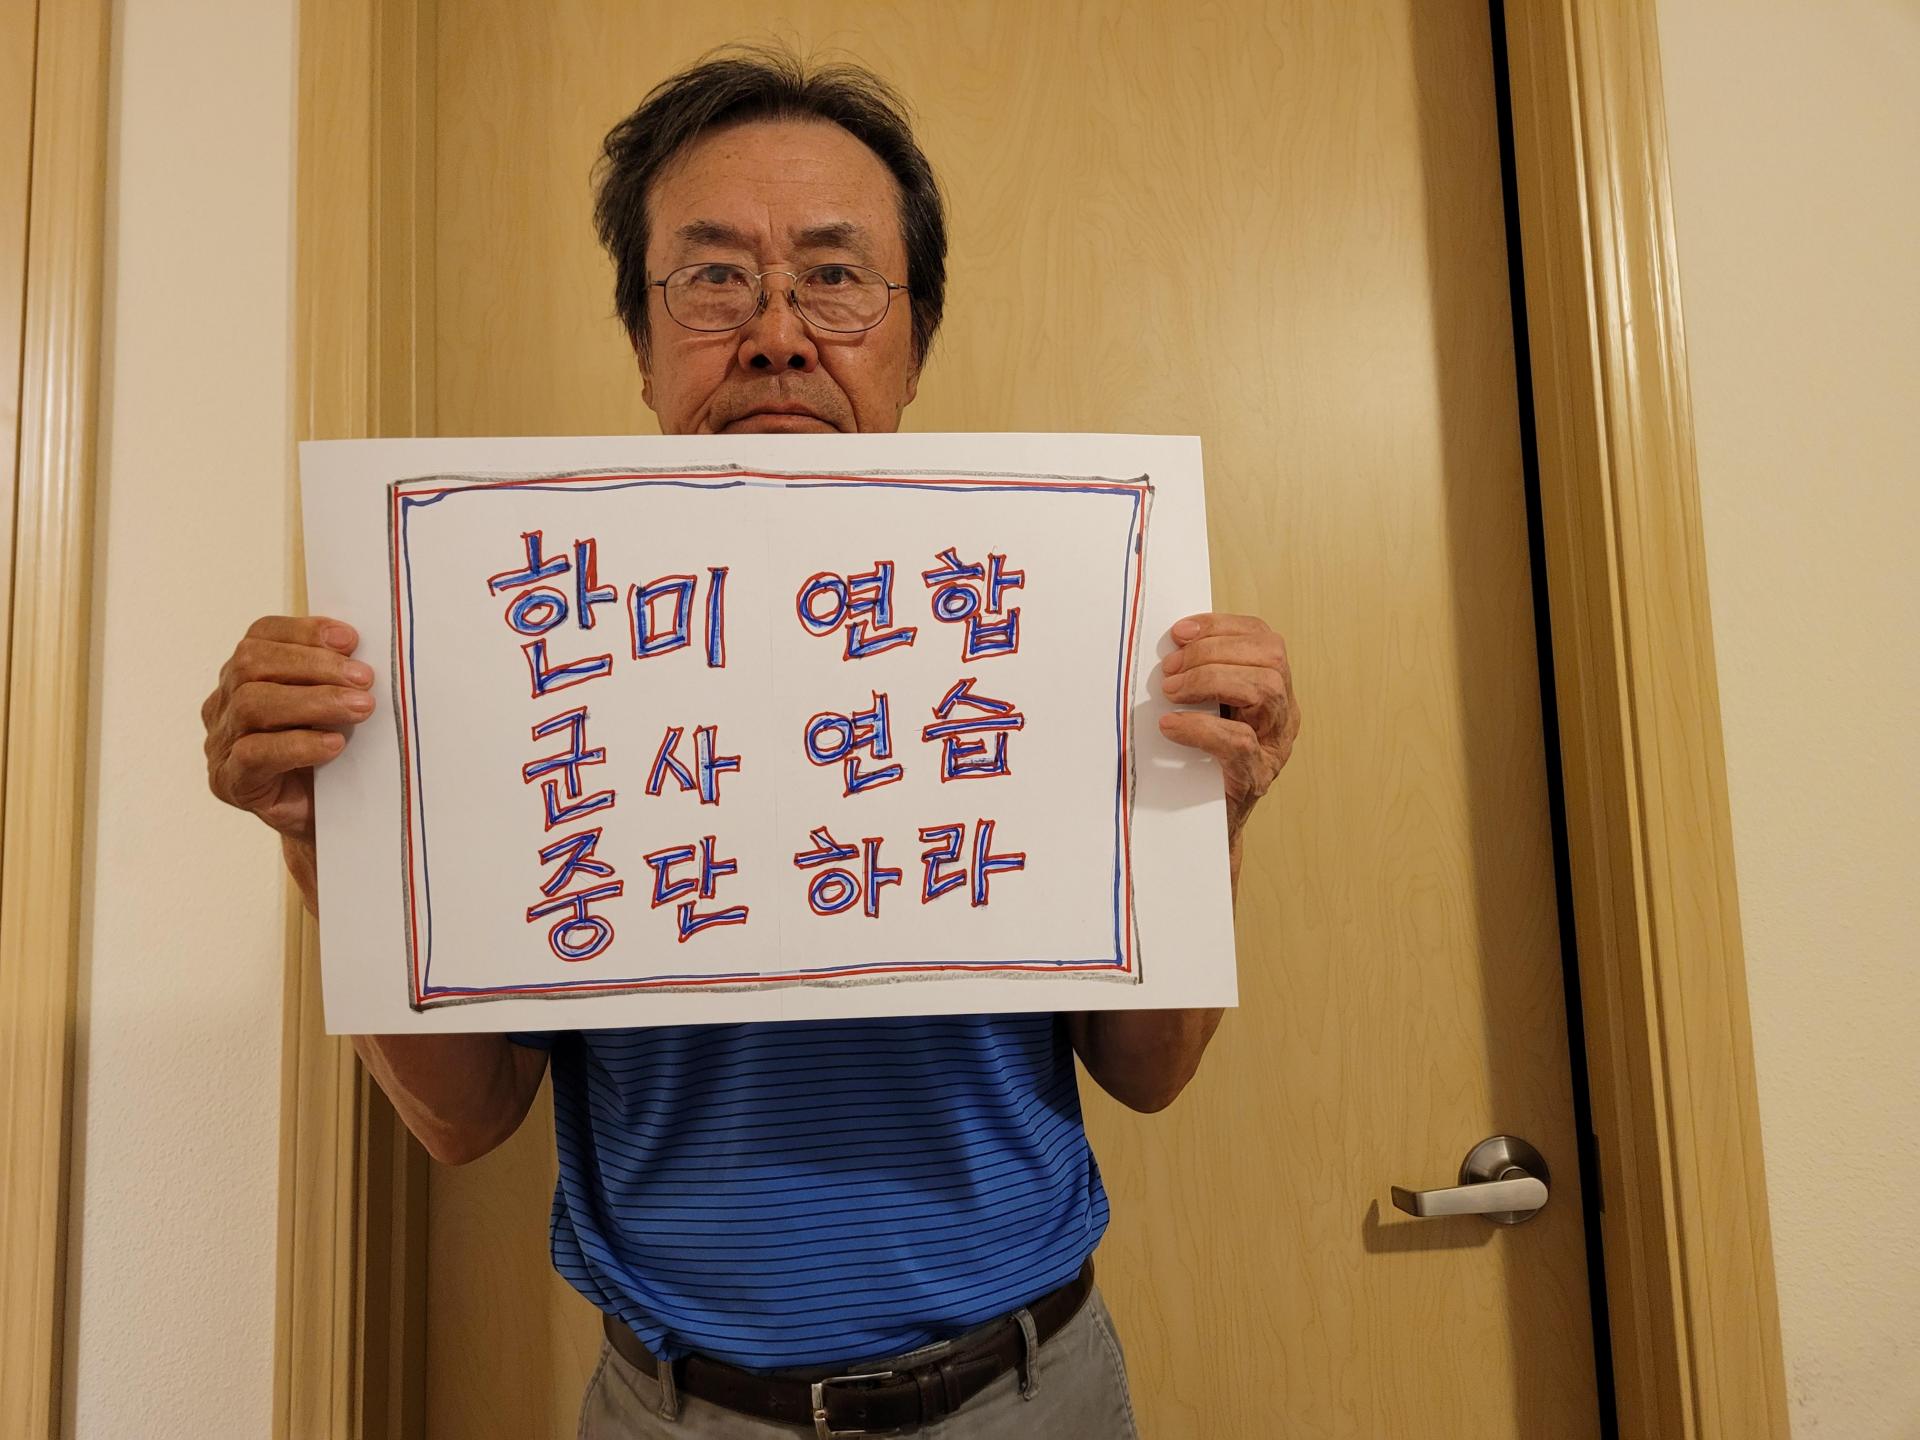 한미 연합
군사 연습
중단 하라